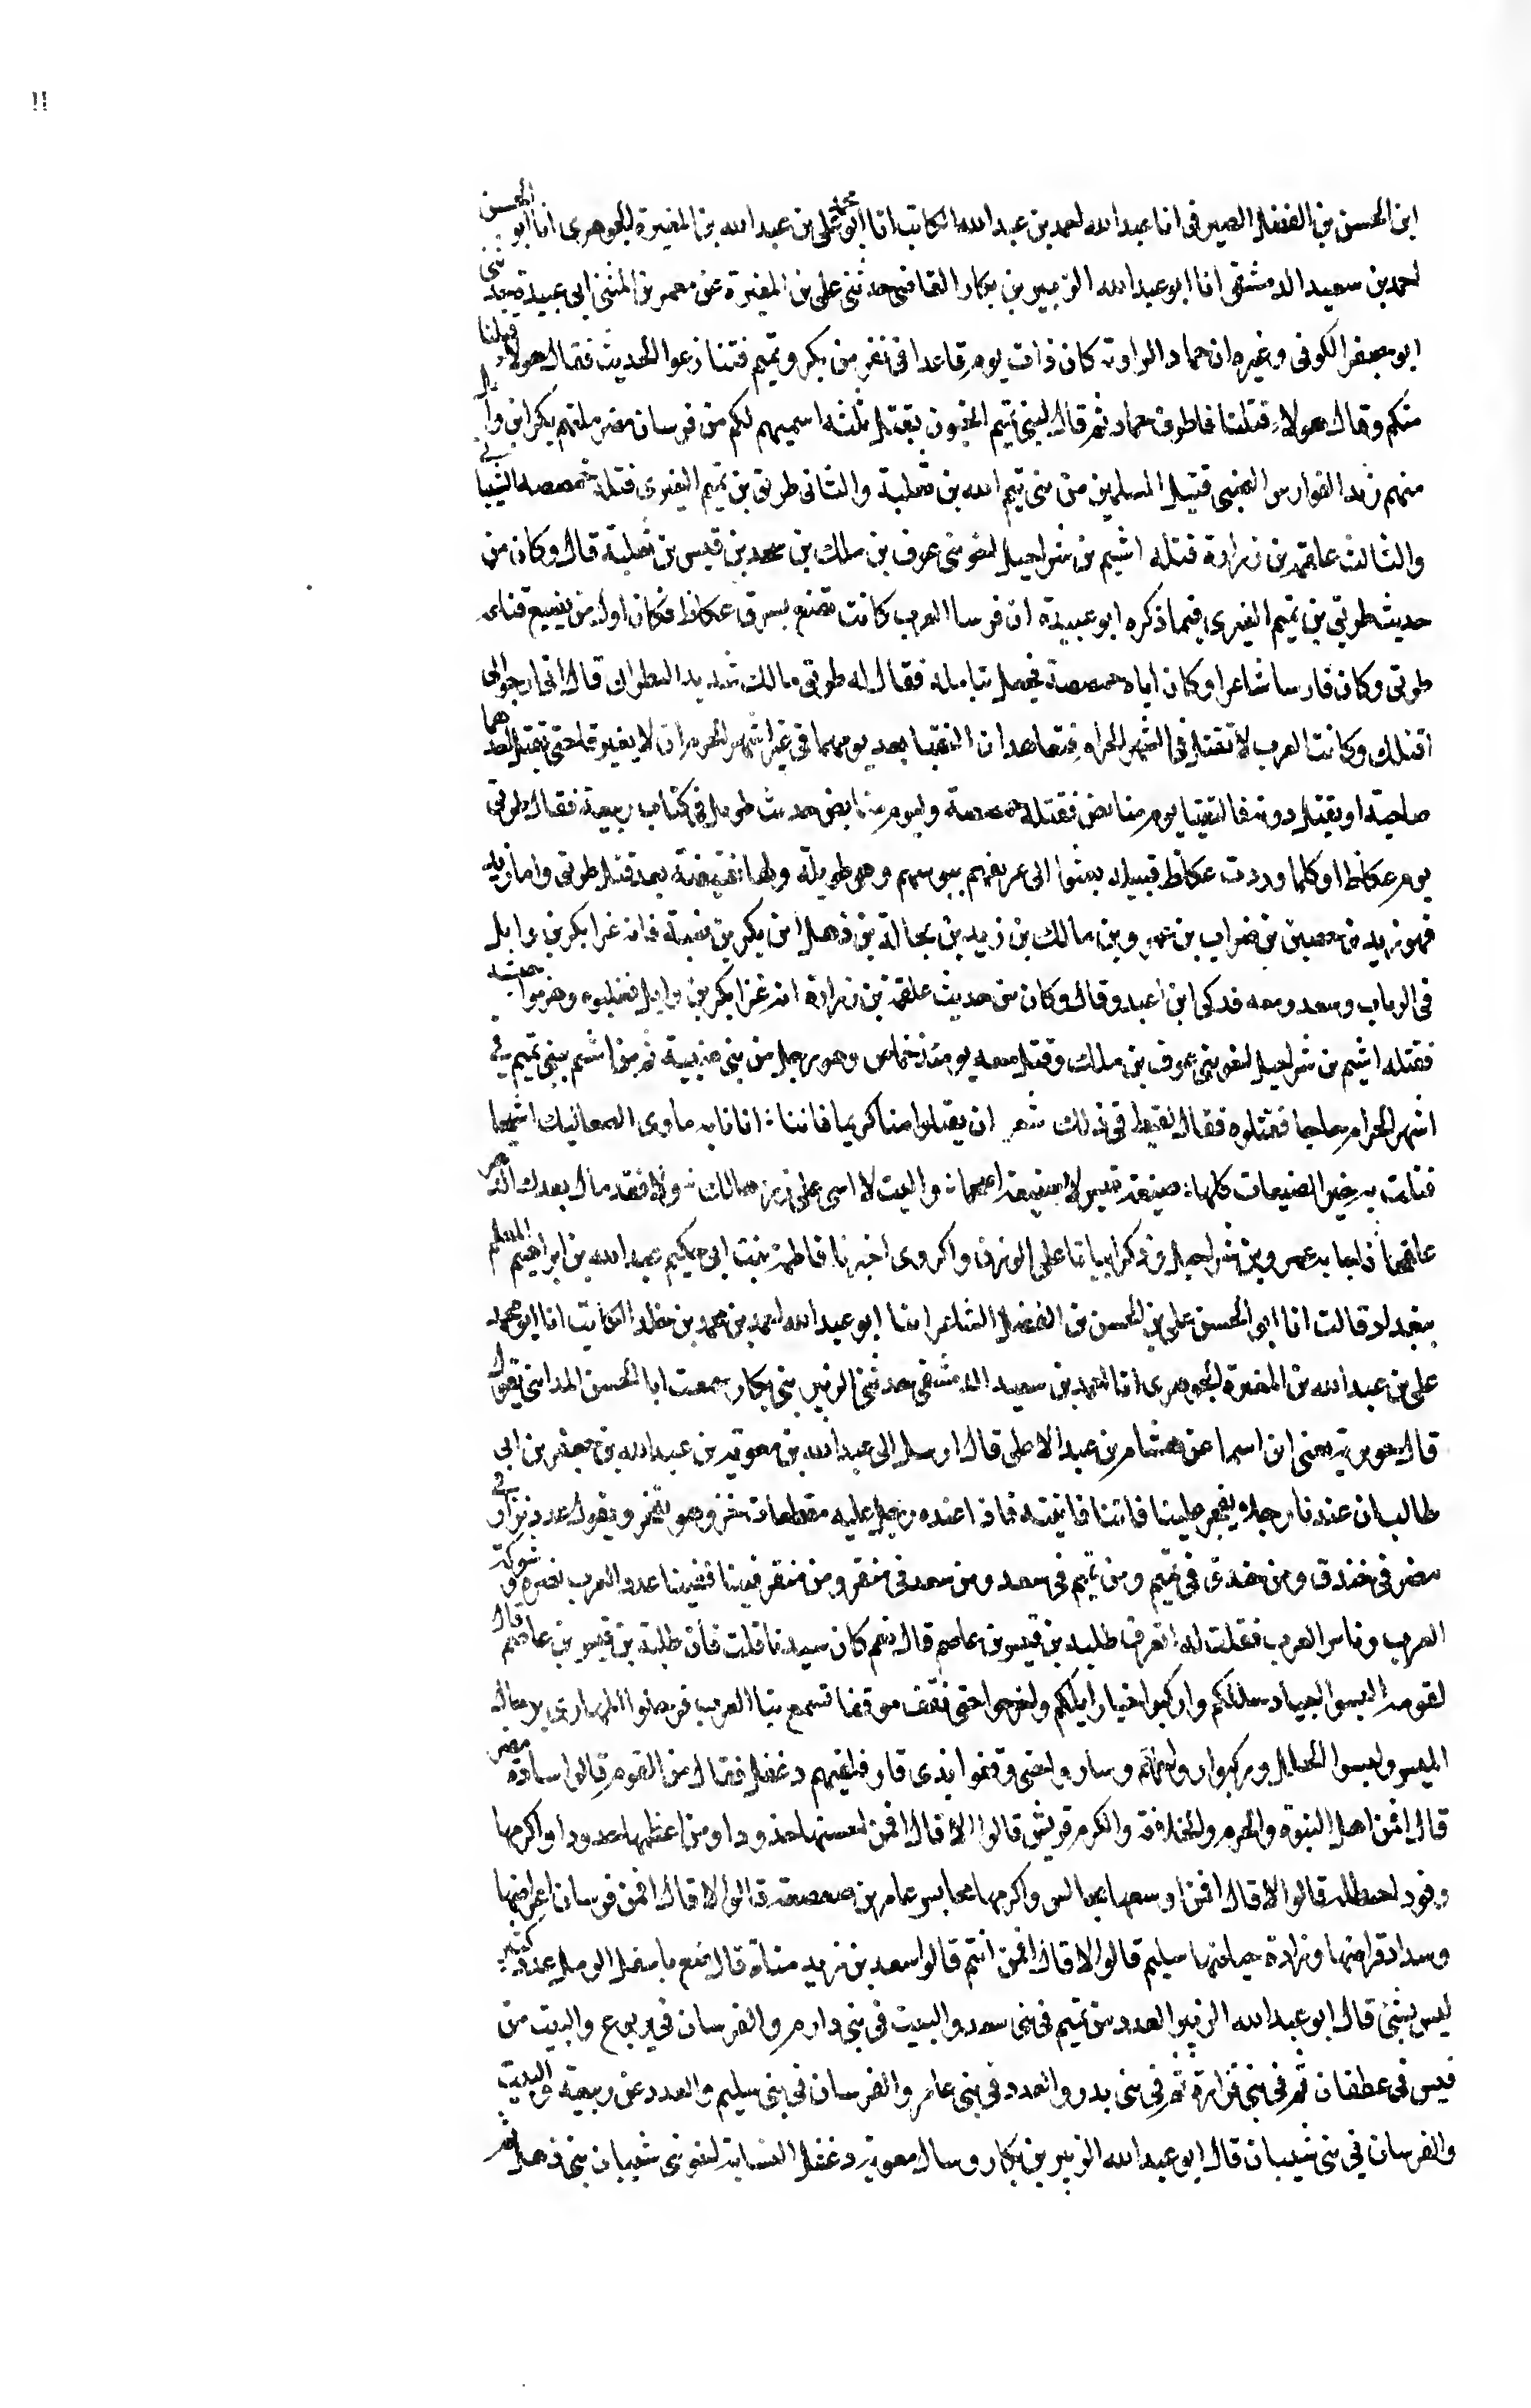 !!
ابن الحسن بن الفضل الصيرفى انا عبد الله احمد بن عبد الله الكاتب انا ابو محمد على بن عبد الله بن المغيرة الجوهرى انا ابو الحسن
احمد بن سعيد الدمشقى انا ابو عبد الله الزبير بن بكار القاضى حدثنى على بن المغيرة عن معمر بن المثنى ابى عبيدة
ابو جعفر الكوفى وغيره ان حماد الراوية كان ذات يوم قاعدا فى نفر من بكر وتميم فتنازعوا الحديث فقال هولاء قتلنا
منكم وقال هولاء قتلنا فاطرق حماد ثم قال لبنى تميم بقتل ثلثه اسميهم لكم من فرسان مضر قتلتهم بكر ابن وايل
منهم زيد الفوارس الضبى قتيل من بنى تيم الله بن ثعلبة والثانى طريق بن تميم العنبرى قتله حمصصه الشيبانى
والثالث علقمة بن زرارة قتله اشيم بن شراحيل اخو بنى عوف بن ملك بن سعد بن قيس بن ثعلبة قال وكان من
حديث طريق بن تميم العنبرى فيما ذكره ابو عبيدة ان فرسا العرب كانت تقنع بسوق عكاظ فكان اول من يضيع قناعه
طريق وكان فارسا شاعرا وكان اياه حمصصة فجعل يتامله فقال له طريق مالك شديد النظر الى قال انى ارجو ان
اقتلك وكانت العرب لا تقتل فى الشهر الحرام فتعاهدا ان التقيا بعد يومهما فى غير الشهر الحرام ان لا يغيرقا حتى يقتل احدهما
صاحبه او يقتل دونه فالتقيا يوم منابض فقتله حمصصة وليوم منابض حديث طويل فى كتاب ربيعة فقال طريق
يوم عكاظ اوكلما وردت عكاظ قبيله بعثوا الى عريفهم يتوسم وهى طويلة ولها نقيضة بعد قتل طريق واما زيد
فهو زيد بن حصين بن ضراب بن عمرو بن مالك بن زيد بن بجالة بن ذهل ابن بكر بن ضبة فانه غزا بكر بن وايل
فى الرباب وسعد ومعه فدكى ابن اعبد وقال وكان من حديث علقمة بن زرارة انه غزا بكر بن وايل فغلبوه وهزموا جيشه
فقتله اشيم بن شراحيل اخو بنى عوف بن ملك وقتل معه يومئذ وهو رجل من بنى ضبيبة ثم مر اشيم ببنى تميم فى
اشهر الحرام حاجا فقتلوه فقال لقيط فى ذلك شعر ان يقتلوا منا كريما فاننا : انا نابه ماوى الصعاليك اشيما
قتلت به خير الضبيعات كلها : ضبيعة قيس لا ضبيعة اضجما : واليت لا اسى على رزء هالك : ولا فقد مال بعدك الدهر
علقما ثم اجابه عمرو بن شراحيل وذكر ابياتا على الوزن والروى اخبرنا فاطمة بنت ابى حكيم عبد الله بن ابراهيم المعلم
ببغداد قالت انا ابى الحسن على بن الحسن بن الفضل الشاعر انا ابو عبد الله احمد بن محمد بن خلد الكاتب انا ابو محمد
على بن عبد الله بن المغيرة الجوهرى انا احمد بن سعيد الدمشقى حدثنى الزبير بنى بكار سمعت ابا الحسن المداينى يقول
قال جويرية يعنى ابن اسما عن هشام بن عبد الاعلى قال ارسل الى عبد الله بن معوية بن عبد الله بن جعفر بن ابى
طالب ان عندنا رجلا يفجر علينا فاتنا فاتيته فاذا عنده رجل عليه مقطعات خز وهو يفخر ويقول عدد نزار فى
مضر فى خندق ومن خندق فى تميم ومن تميم فى سعد ومن سعد فى منقر ومن منقر فينا ففينا عدد العرب وشوكة
العرب وناس العرب فقلت له اتعرف طلبه بن قيس بن عاصم قال نعم كان سيدنا قلت فان طلبة بن قيس بن عاصم قال
لقومه البسوا الجياد حللكم واركبوا خيار ابلكم واخرجوا حتى نقف موقفا تسمع بنا العرب فرحلوا المهارى برحال
الميس ولبسوا الحلل وركبوا رواحلهم وسار والحتى وقفوا بذى قار فلقيهم دغفل فقال من القوم قالوا سادة مضر
قال افمن اهل النبوة والحرم والخلافة والكرم قريش قالوا الا قال افمن احسنها خدودا ومن اعظمها جدودا واكرمها
وفود حنظلة قالوا لا قال افمن اوسعها مجالس واكرمها محابس عامر بن صعصعة قالوا لا قال افمن فرسان اعراضها
وسداد قراضها وزرادة حماتها سليم قالوا لا قال افمن انتم قالوا سعد بن زيد مناة قال ما سفل الرمل عدد كثير
ليس بشى قال ابو عبد الله الزبير العدد من تميم فى بنى سعد والبيت فى بنى دارم والفرسان فى يربوع والبيت من
قيس فى غطفان ثم فى بنى فزارة ثم فى بنى بدر والعدد فى بنى عامر والفرسان فى بنى سليم والعدد عن ربيعة والبيت
والفرسان فى بنى شيبان قال ابو عبد الله الزبير بن بكار وسال معوية دغفل النسابة اخو بنى شيبان بنى ذهل ثم